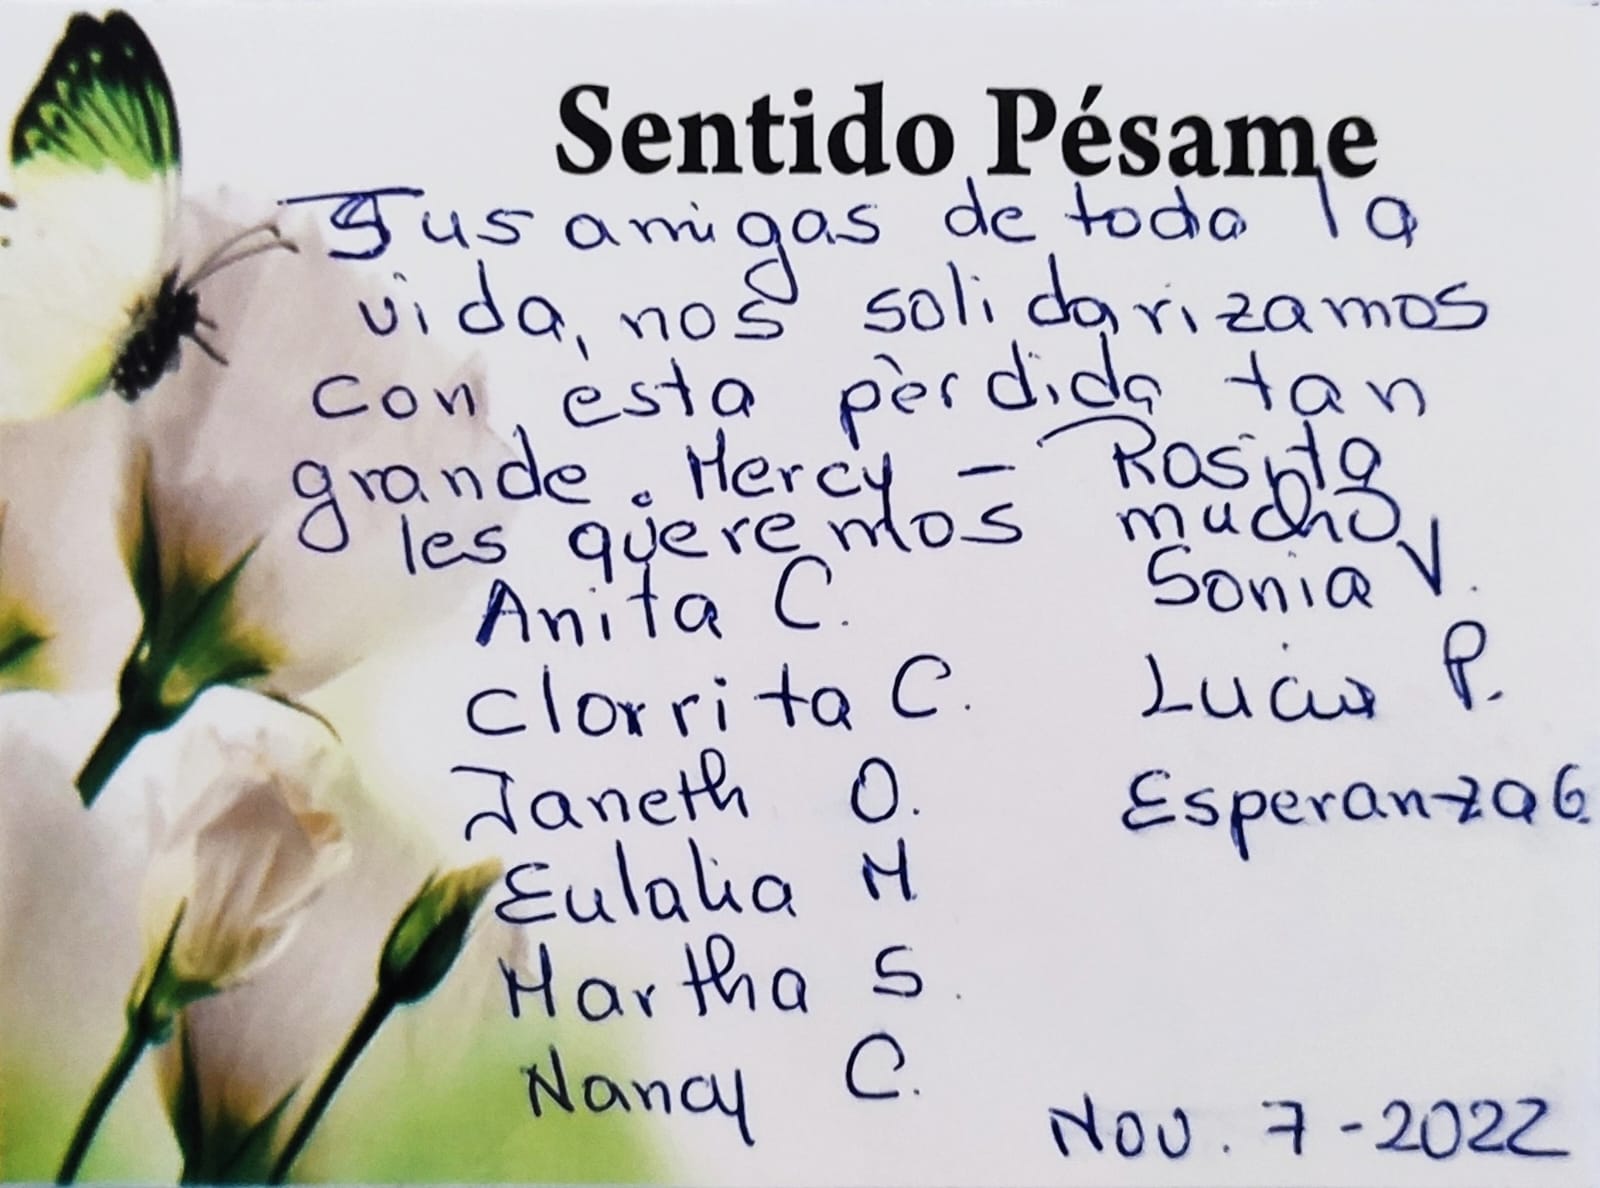 Sentido Pésame
Tus amigas de toda la
vida, nos solidarizamos
con èsta pèrdida tan
grande. Mercy - Rosita
les queremos mucho
Anita C. Sonia V.
Clorrita C. P.
Janeth O. Esperanza G.
Eulalia M
Martha S.
Nancy C.
Nov. 7-2022